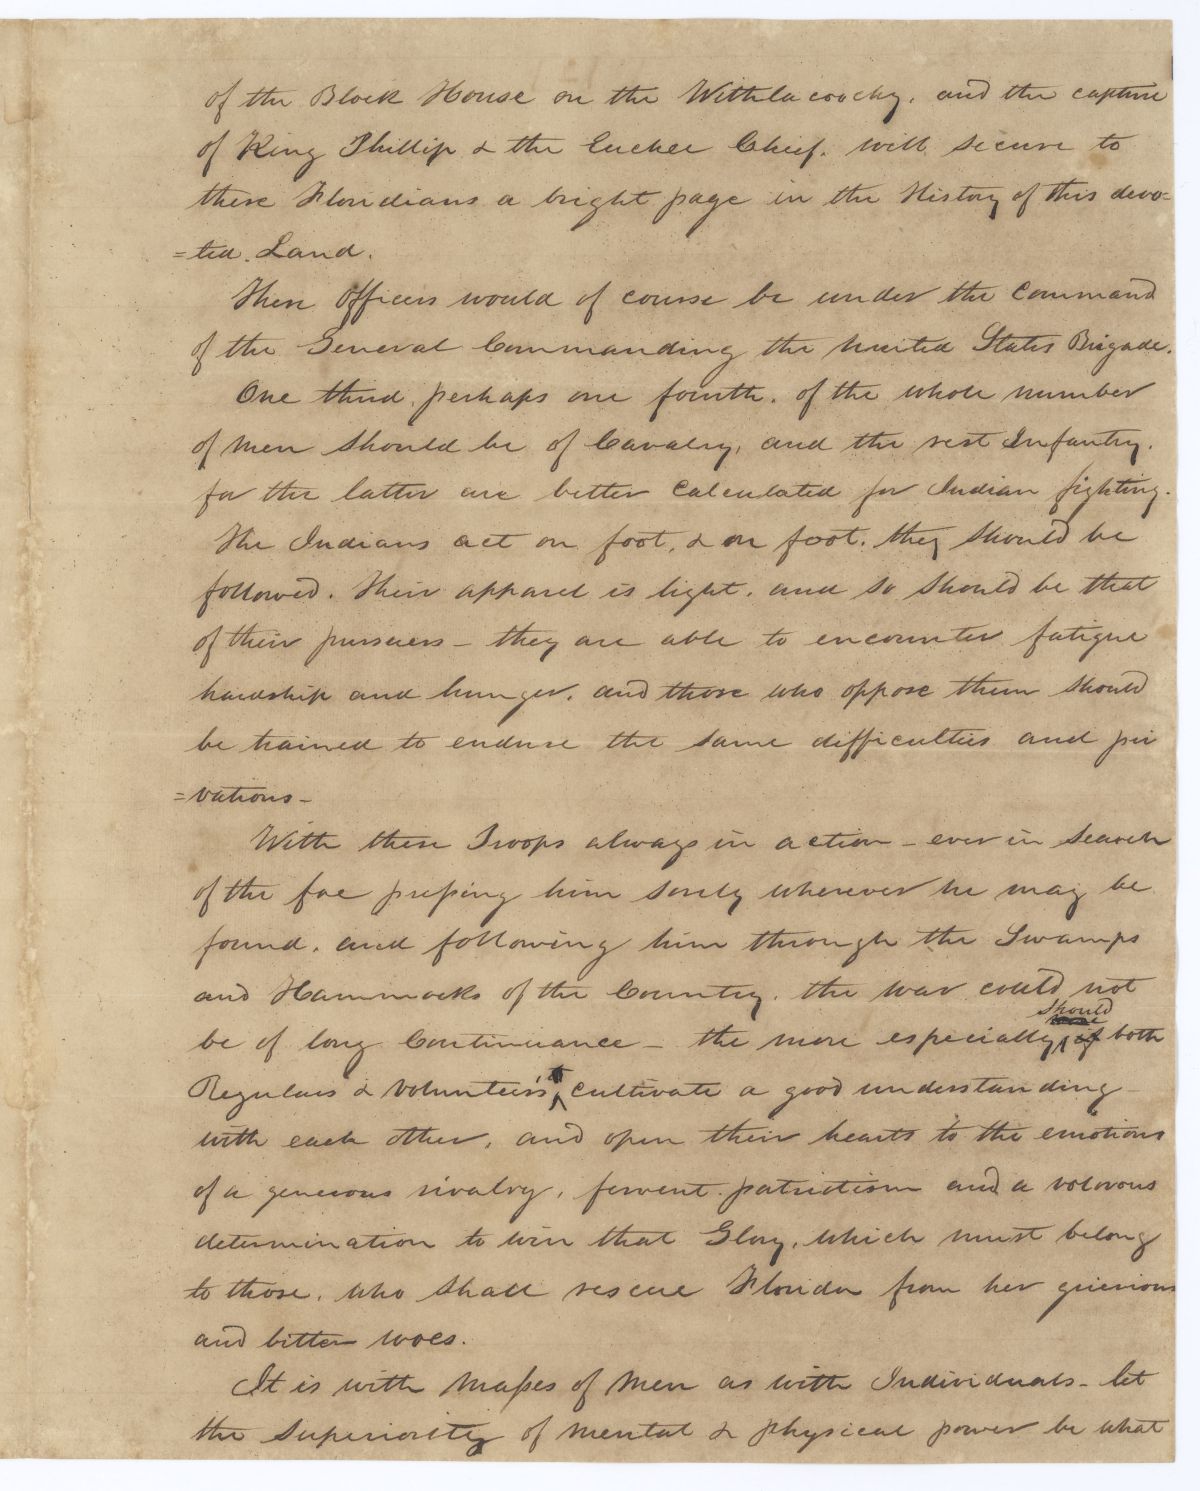 of the Block House on the Withlacoochy, and the capture
of King Phillip & the Euchee Chief. will secure to
these Floridians a bright page in the History of this devo-
=ted. Land.
These Officers would of course be under the Command
of the General Commanding the United States Brigade.
One third, perhaps one fourth. of the whole number
of men should be of Cavalry, and the rest Infantry.
for the latter are better calculated for Indian fighting.
The Indians act on foot, & on foot. they should be
followed. Their apparel is light. and so should be that
of their pursuers - they are able to encounter fatigue
hardship and hunger, and those who oppose them should
be trained to endure the same difficulties and pri
=vations -
With these Troops always in action - ever in search
of the foe pressing him sorely wherever he may be
found. and following him through the Swamps
and Hammocks of the Country. the war could not
should
be of long Continuance - the more especially if both
Regulars & Volunteers cultivate a good understanding
with each other, and open their hearts to the emotions
of a generous rivalry, fervent patriotism and a valorous
determination to win that Glory, which must belong
to those. who shall rescue Florida from her grievious
and bitter woes.
It is with Masses of Men as with Individuals - let
the Superiority of mental & physical power be what